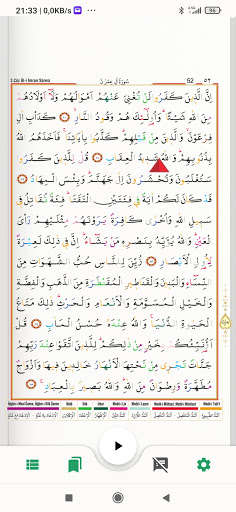 21:33 | 0,0KB/s
96
3.Cüz Âl-i İmran Sûresi سورة آل عمران 52 ٥٢
إِنَّ الَّذِينَ كَفَرُوا لَنْ تُغْنِيَ عَنْهُمْ أَمْوَالُهُمْ وَلَا أَوْلَادُهُمْ
مِنَ اللَّهِ شَيْئًا وَأُولَٰئِكَ هُمْ وَقُودُ النَّارِ كَدَأْبِ آلِ
فِرْعَوْنَ وَالَّذِينَ مِنْ قَبْلِهِمْ كَذَّبُوا بِآيَاتِنَا فَأَخَذَهُمُ اللَّهُ
بِذُنُوبِهِمْ وَاللَّهُ شَدِيدُ الْعِقَابِ قُلْ لِلَّذِينَ كَفَرُوا
سَتُغْلَبُونَ وَتُحْشَرُونَ إِلَىٰ جَهَنَّمَ وَبِئْسَ الْمِهَادُ
قَدْ كَانَ لَكُمْ آيَةٌ فِي فِئَتَيْنِ الْتَقَتَا فِئَةٌ تُقَاتِلُ فِي
سَبِيلِ اللَّهِ وَأُخْرَىٰ كَافِرَةٌ يَرَوْنَهُمْ مِثْلَيْهِمْ رَأْيَ
الْعَيْنِ وَاللَّهُ يُؤَيِّدُ بِنَصْرِهِ مَنْ يَشَاءُ إِنَّ فِي ذَٰلِكَ لَعِبْرَةً
لِأُولِي الْأَبْصَارِ زُيِّنَ لِلنَّاسِ حُبُّ الشَّهَوَاتِ مِنَ
النِّسَاءِ وَالْبَنِينَ وَالْقَنَاطِيرِ الْمُقَنْطَرَةِ مِنَ الذَّهَبِ وَالْفِضَّةِ
وَالْخَيْلِ الْمُسَوَّمَةِ وَالْأَنْعَامِ وَالْحَرْثِ ذَٰلِكَ مَتَاعُ
الْحَيَاةِ الدُّنْيَا وَاللَّهُ عِنْدَهُ حُسْنُ الْمَآبِ قُلْ
أَؤُنَبِّئُكُمْ بِخَيْرٍ مِنْ ذَٰلِكُمْ لِلَّذِينَ اتَّقَوْا عِنْدَ رَبِّهِمْ
جَنَّاتٌ تَجْرِي مِنْ تَحْتِهَا الْأَنْهَارُ خَالِدِينَ فِيهَا وَأَزْوَاجٌ
مُطَهَّرَةٌ وَرِضْوَانٌ مِنَ اللَّهِ وَاللَّهُ بَصِيرٌ بِالْعِبَادِ